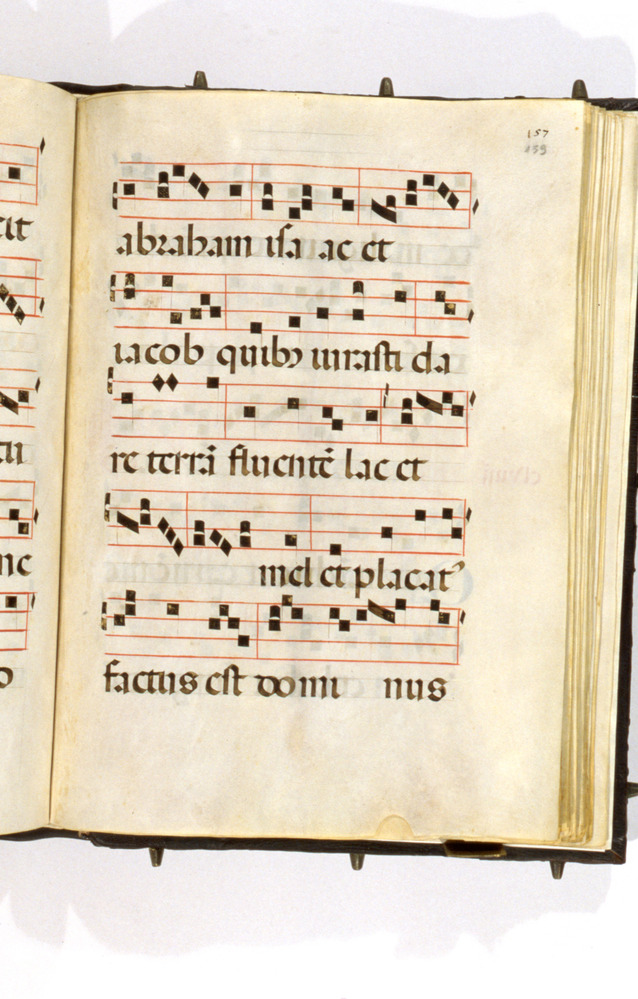 157
159
abraham isa ac et
iacob quibꝫ iurasti da
re terrā fluentē lac et
mel et placatꝰ
factus est domi nus